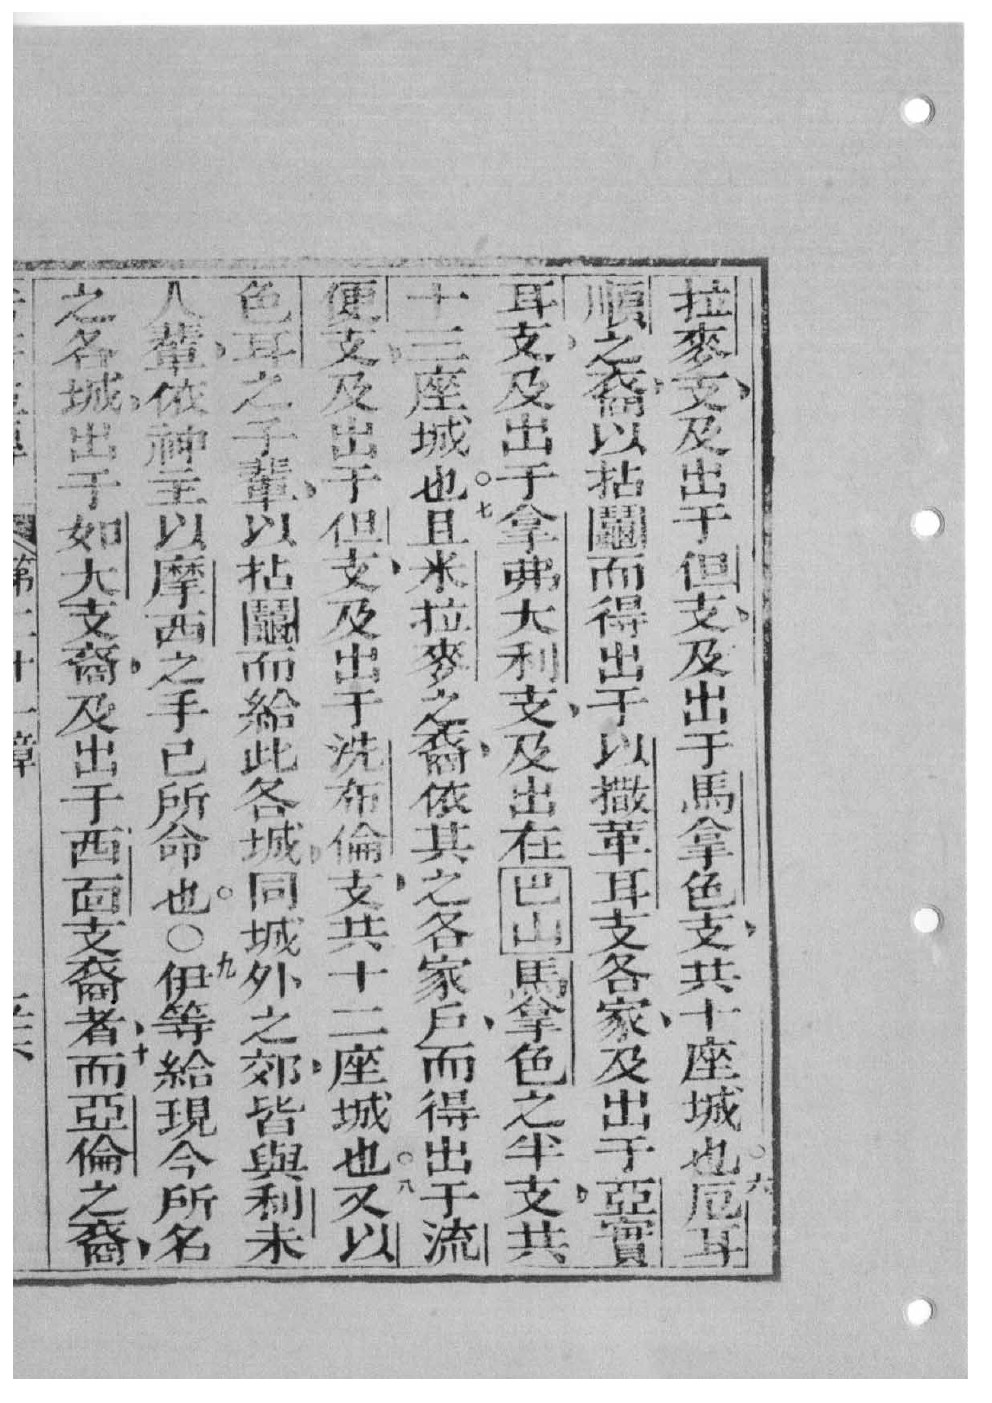 拉麥支、及出于但支、及出于馬拿色支、共十座城也。六厄耳
順之裔、以拈鬮而得出于以撒革耳支各家、及出于亞實
耳支、及出于拿弗大利支、及出在巴山馬拿色之半支、共
十三座城也。七且米拉麥之裔、依其之各家戶、而得出于流
便支、及出于但支、及出于洗布倫支、共十二座城也。八又以
色耳之子輩、以拈鬮而給此各城、同城外之郊、皆與利未
人輩、依神主以摩西之手已所命也。〇九伊等給現今所名
之各城、出于如大支裔、及出于西面支裔者、十而亞倫之裔、
第二十一章